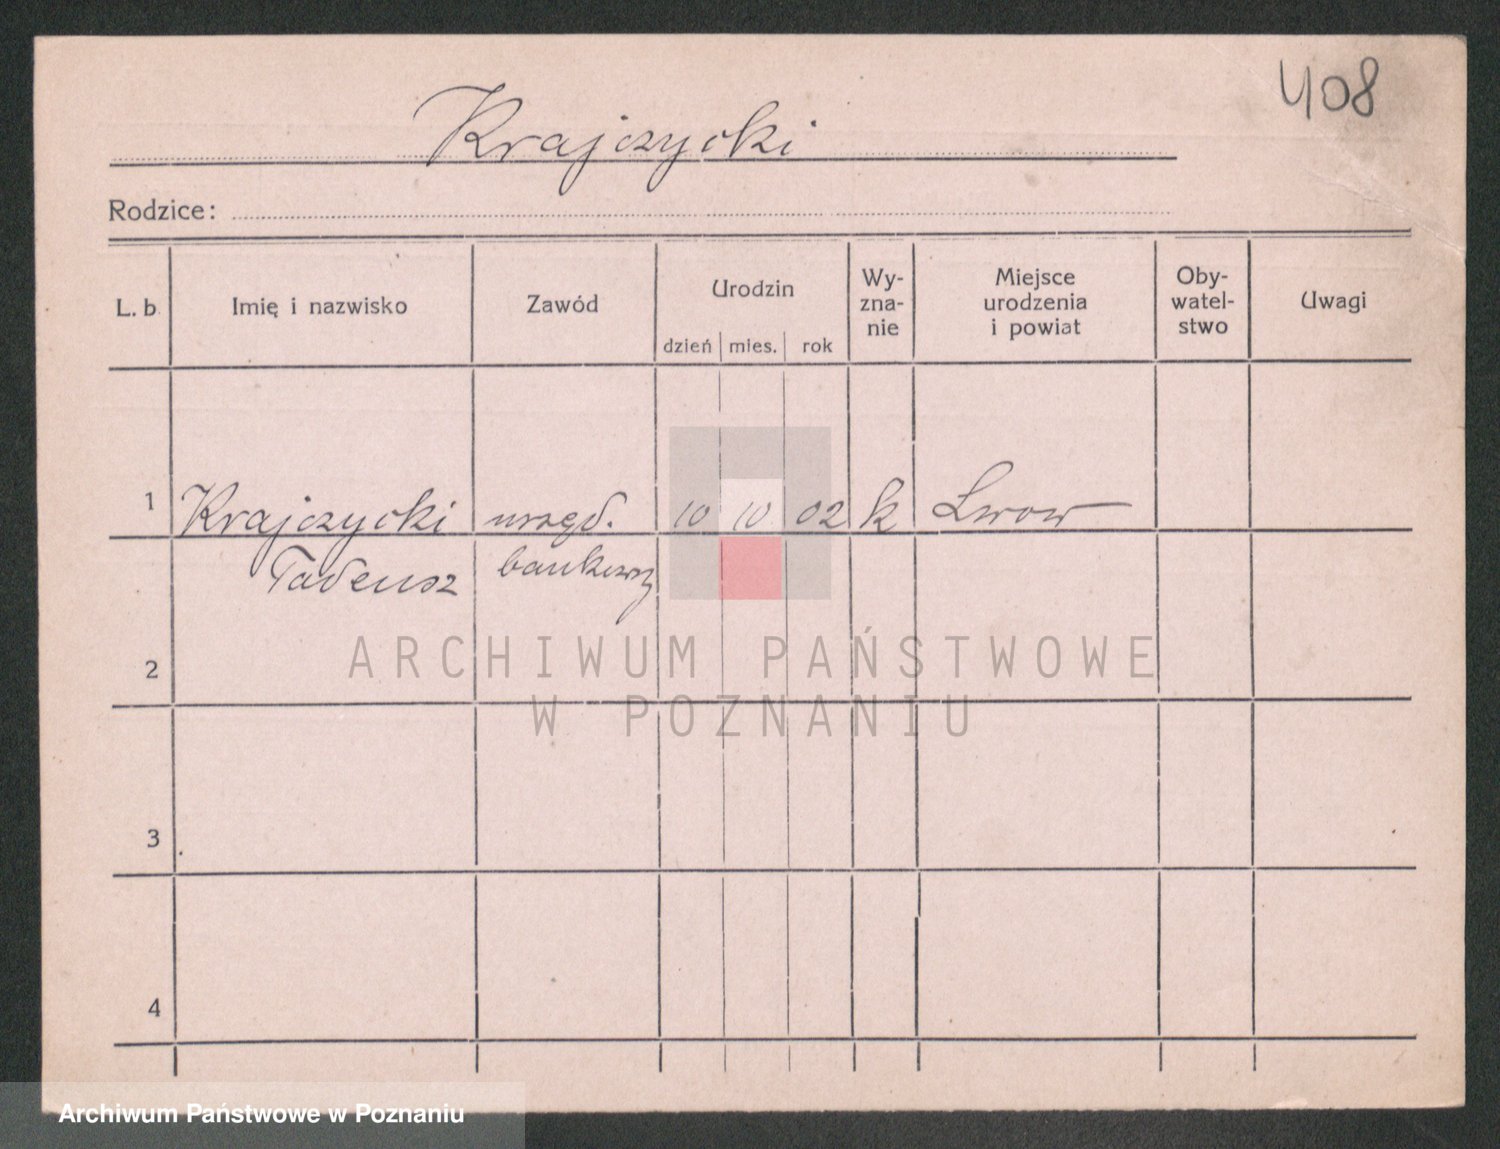 408
Krajczycki
Rodzice:
L. b. Imię i nazwisko Zawód Urodzin Wy-zna-nie Miejsce urodzenia i powiat Oby-watel-stwo Uwagi
dzień mies. rok
1 Krajczycki urzęd. 10 10 02 k Lwow
Tadeusz bankowy
2
3
4
ARCHIWUM PAŃSTWOWE
W POZNANIU
Archiwum Państwowe w Poznaniu